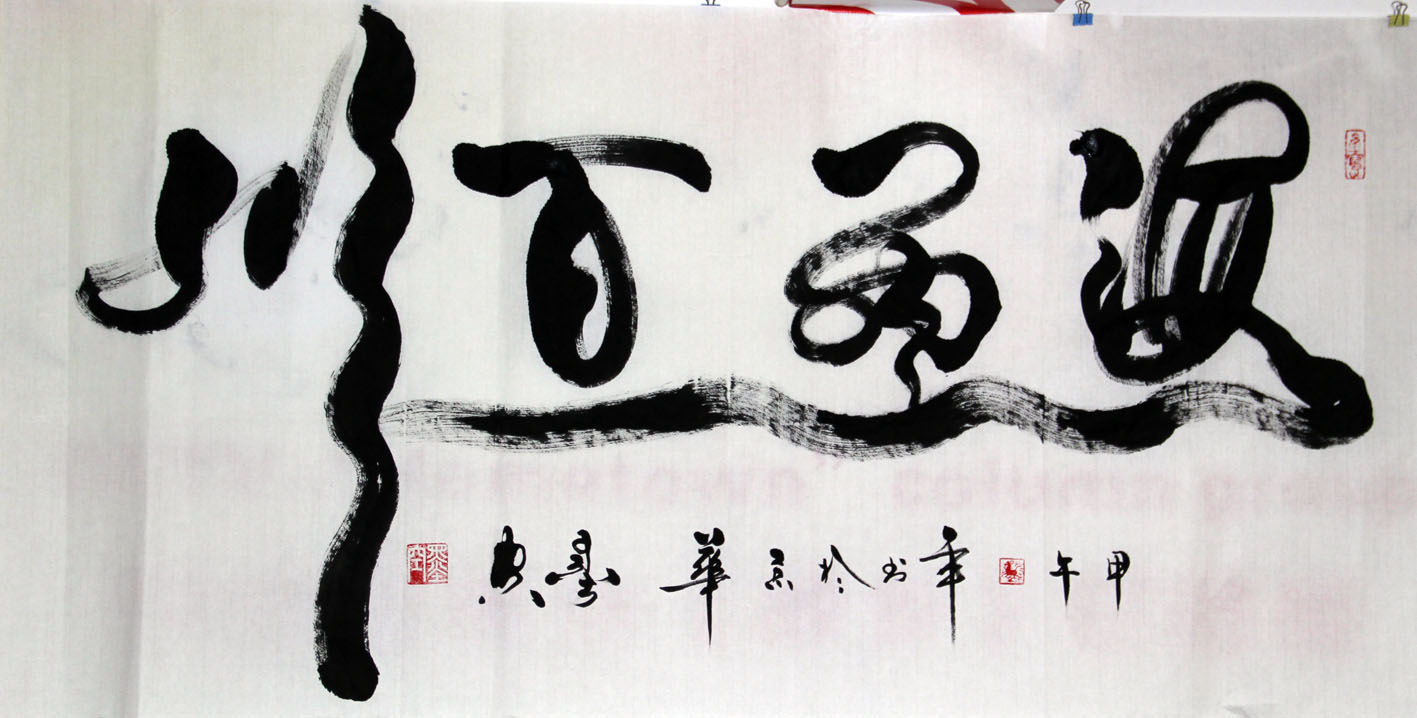 海納百川
甲午年书於京華墨